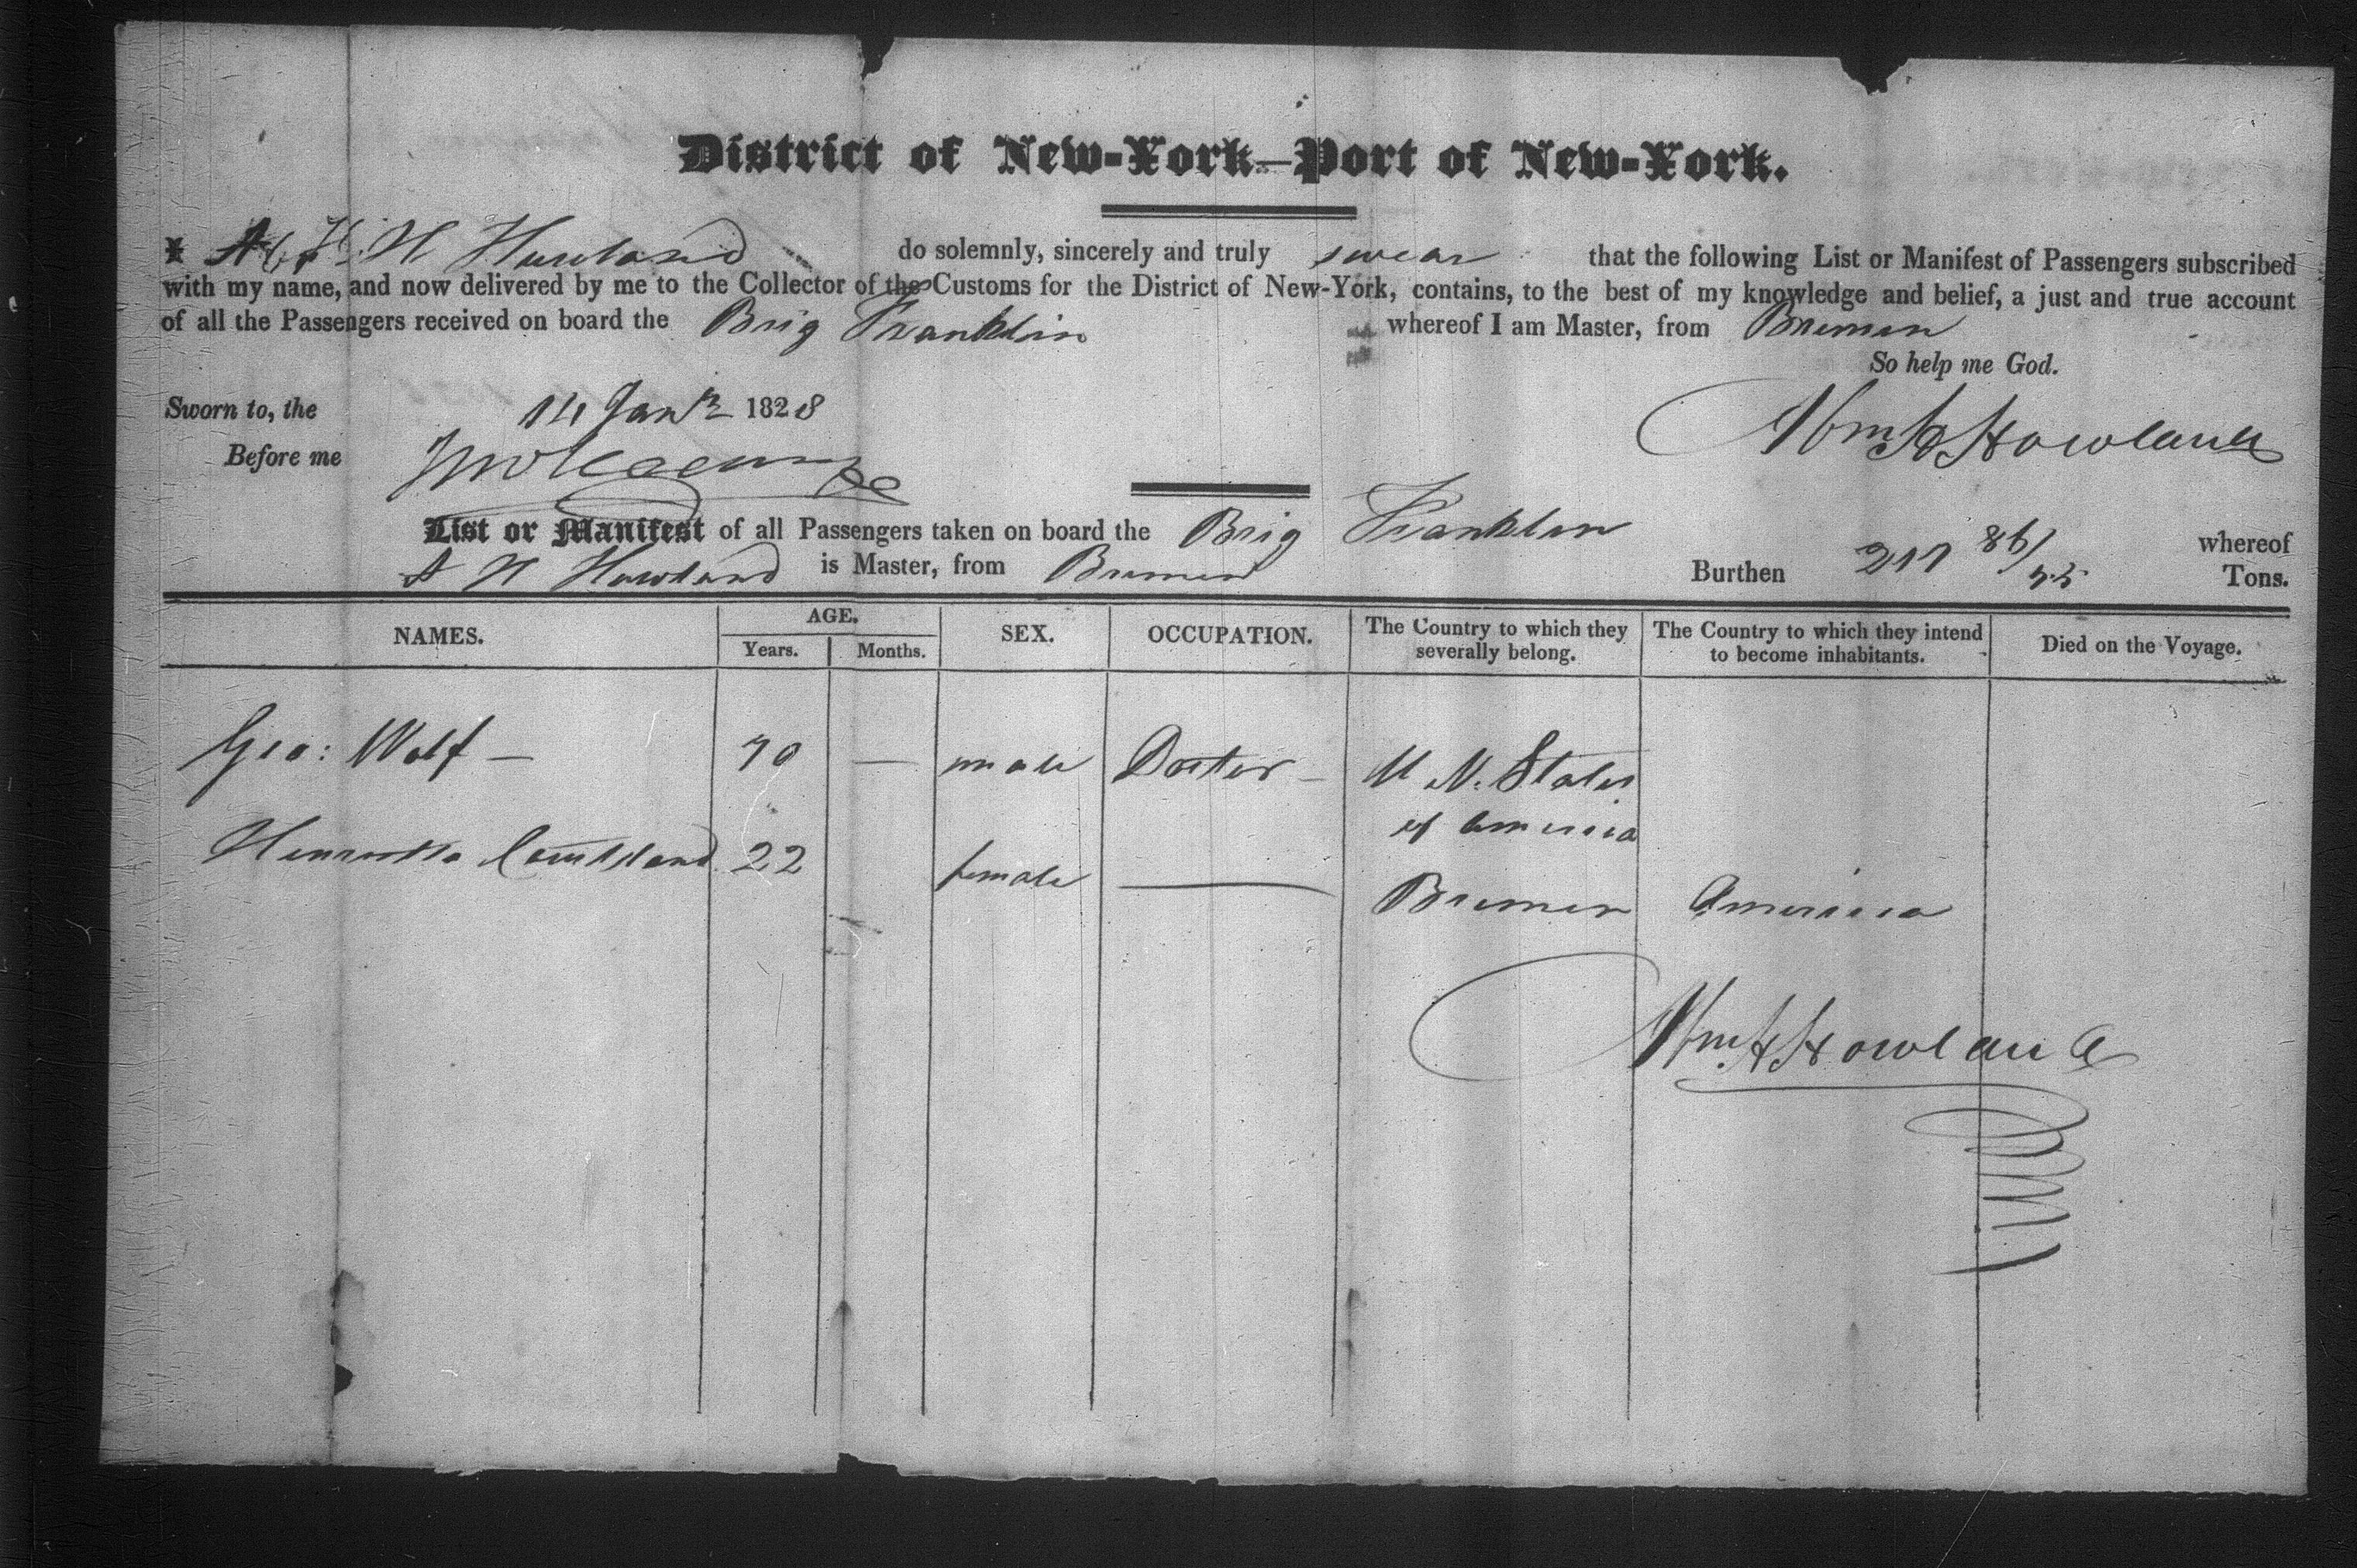 District of New-York—Port of New-York.
H Howland do solemnly, sincerely and truly swear that the following List or Manifest of Passengers subscribed
with my name, and now delivered by me to the Collector of the Customs for the District of New-York, contains, to the best of my knowledge and belief, a just and true account
of all the Passengers received on board the Brig Franklin whereof I am Master, from Bremen
So help me God.
Sworn to, the 14 Jany 1828
Before me
Howland
List or Manifest of all Passengers taken on board the Brig Franklin whereof
A H Howland is Master, from Bremen Burthen 217 86/95 Tons.
NAMES. AGE. SEX. OCCUPATION. The Country to which they severally belong. The Country to which they intend to become inhabitants. Died on the Voyage.
Years. Months.
Geo: Wolf — 70 — male Docter — U N. States
of America
Henrietta 22 female — Bremen America
Howland